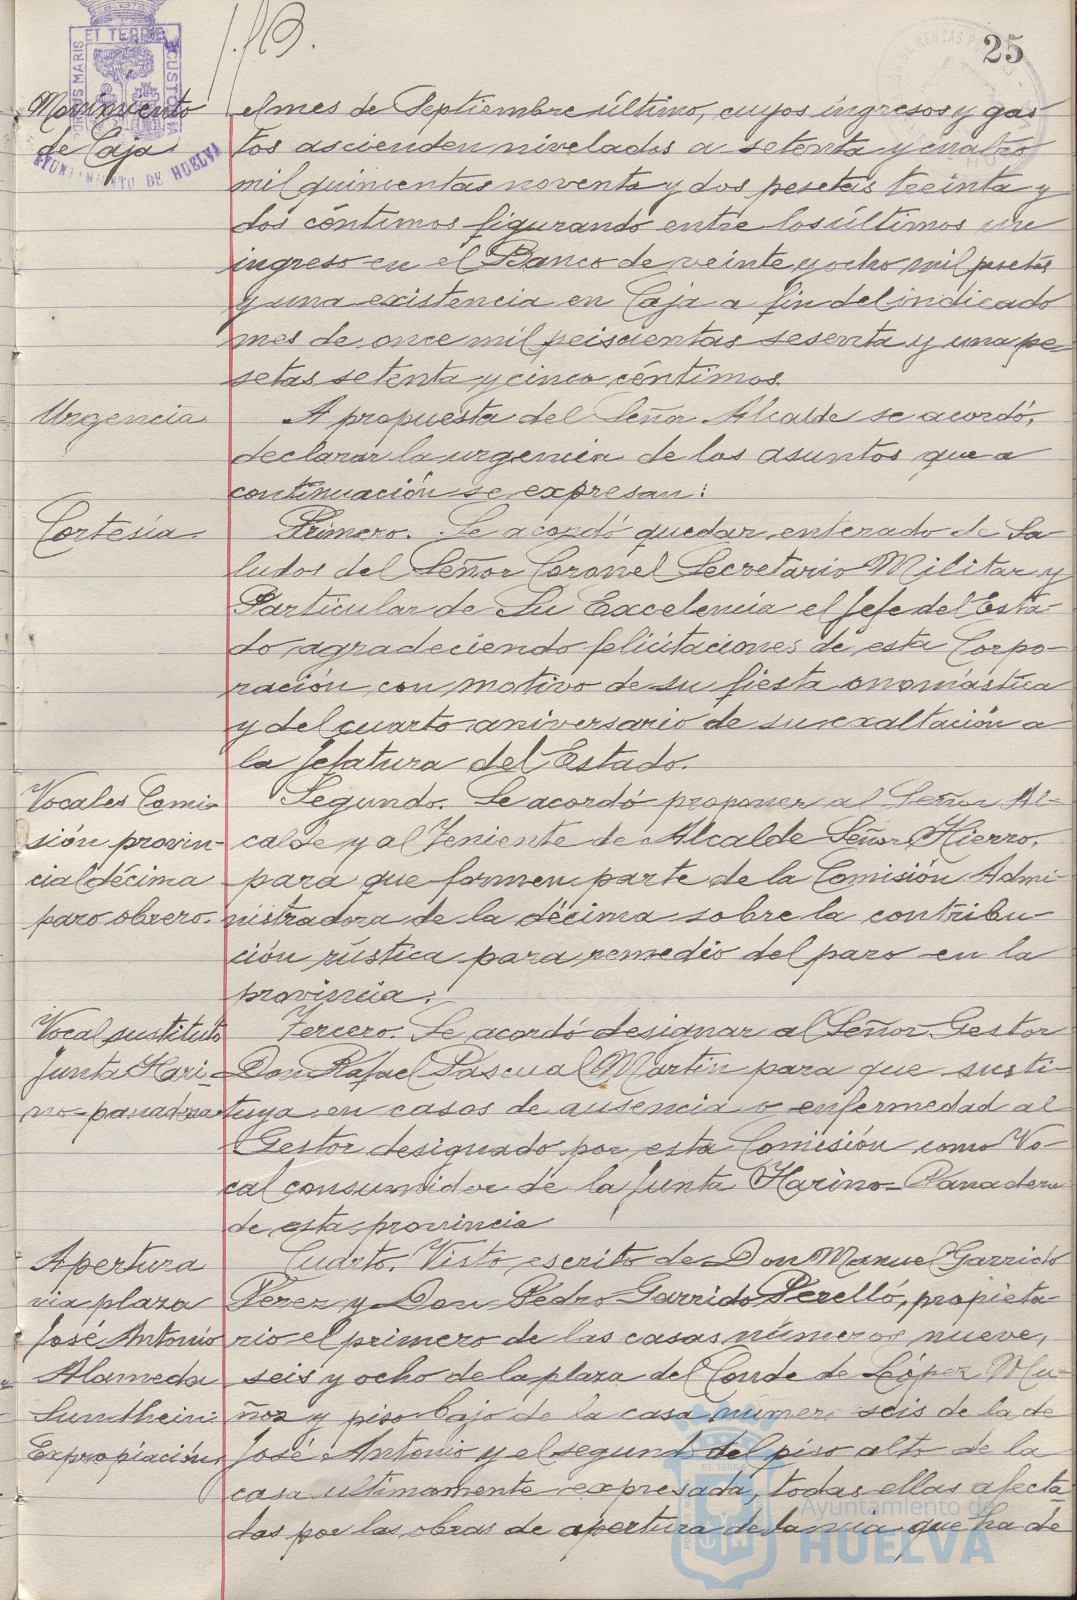 25
Movimiento
de Caja.
el mes de Septiembre último, cuyos ingresos y gas-
tos ascienden nivelados a setenta y cuatro
mil quinientas noventa y dos pesetas treinta y
dos céntimos figurando entre los últimos un
ingreso en el Banco de veinte y ocho mil pesetas
y una existencia en Caja a fin del indicado
mes de once mil seiscientas sesenta y una pe-
setas setenta y cinco céntimos.
Urgencia
A propuesta del Señor Alcalde se acordó,
declarar la urgencia de los asuntos que a
continuación se expresan:
Cortesía.
Primero. Se acordó quedar enterado de Sa
ludos del Señor Coronel Secretario Militar y
Particular de Su Excelencia el Jefe del Esta-
do agradeciendo felicitaciones de esta Corpo-
ración con motivo de su fiesta onomástica
y del cuarto aniversario de su exaltación a
la Jefatura del Estado.
Vocales Comi-
sión provin-
cial décima
paro obrero.
Segundo. Se acordó proponer al Señor Al-
calde y al Teniente de Alcalde Señor Hierro,
para que formen parte de la Comisión Admi-
nistradora de la décima sobre la contribu-
ción rústica para remedio del paro en la
provincia.
Vocal sustituto
Junta Hari-
no-panadera
Tercero. Se acordó designar al Señor Gestor
Don Rafael Pascual Martín para que susti-
tuya en casos de ausencia o enfermedad al
Gestor designado por esta Comisión como Vo-
cal consumidor de la Junta Harino-Panadera
de esta provincia
Apertura
via plaza
José Antonio
Alameda
Sundheim:
Expropiación.
Cuarto. Visto escrito de Don Manuel Garrido
Perez y Don Pedro Garrido Perelló, propieta-
rio el primero de las casas números nueve,
seis y ocho de la plaza del Conde de López Mu-
ñoz y piso bajo de la casa número seis de la de
José Antonio y el segundo del piso alto de la
casa ultimamente expresada, todas ellas afecta-
das por las obras de apertura de la via que ha de
AYUNTAMIENTO DE HUELVA
Ayuntamiento de
HUELVA